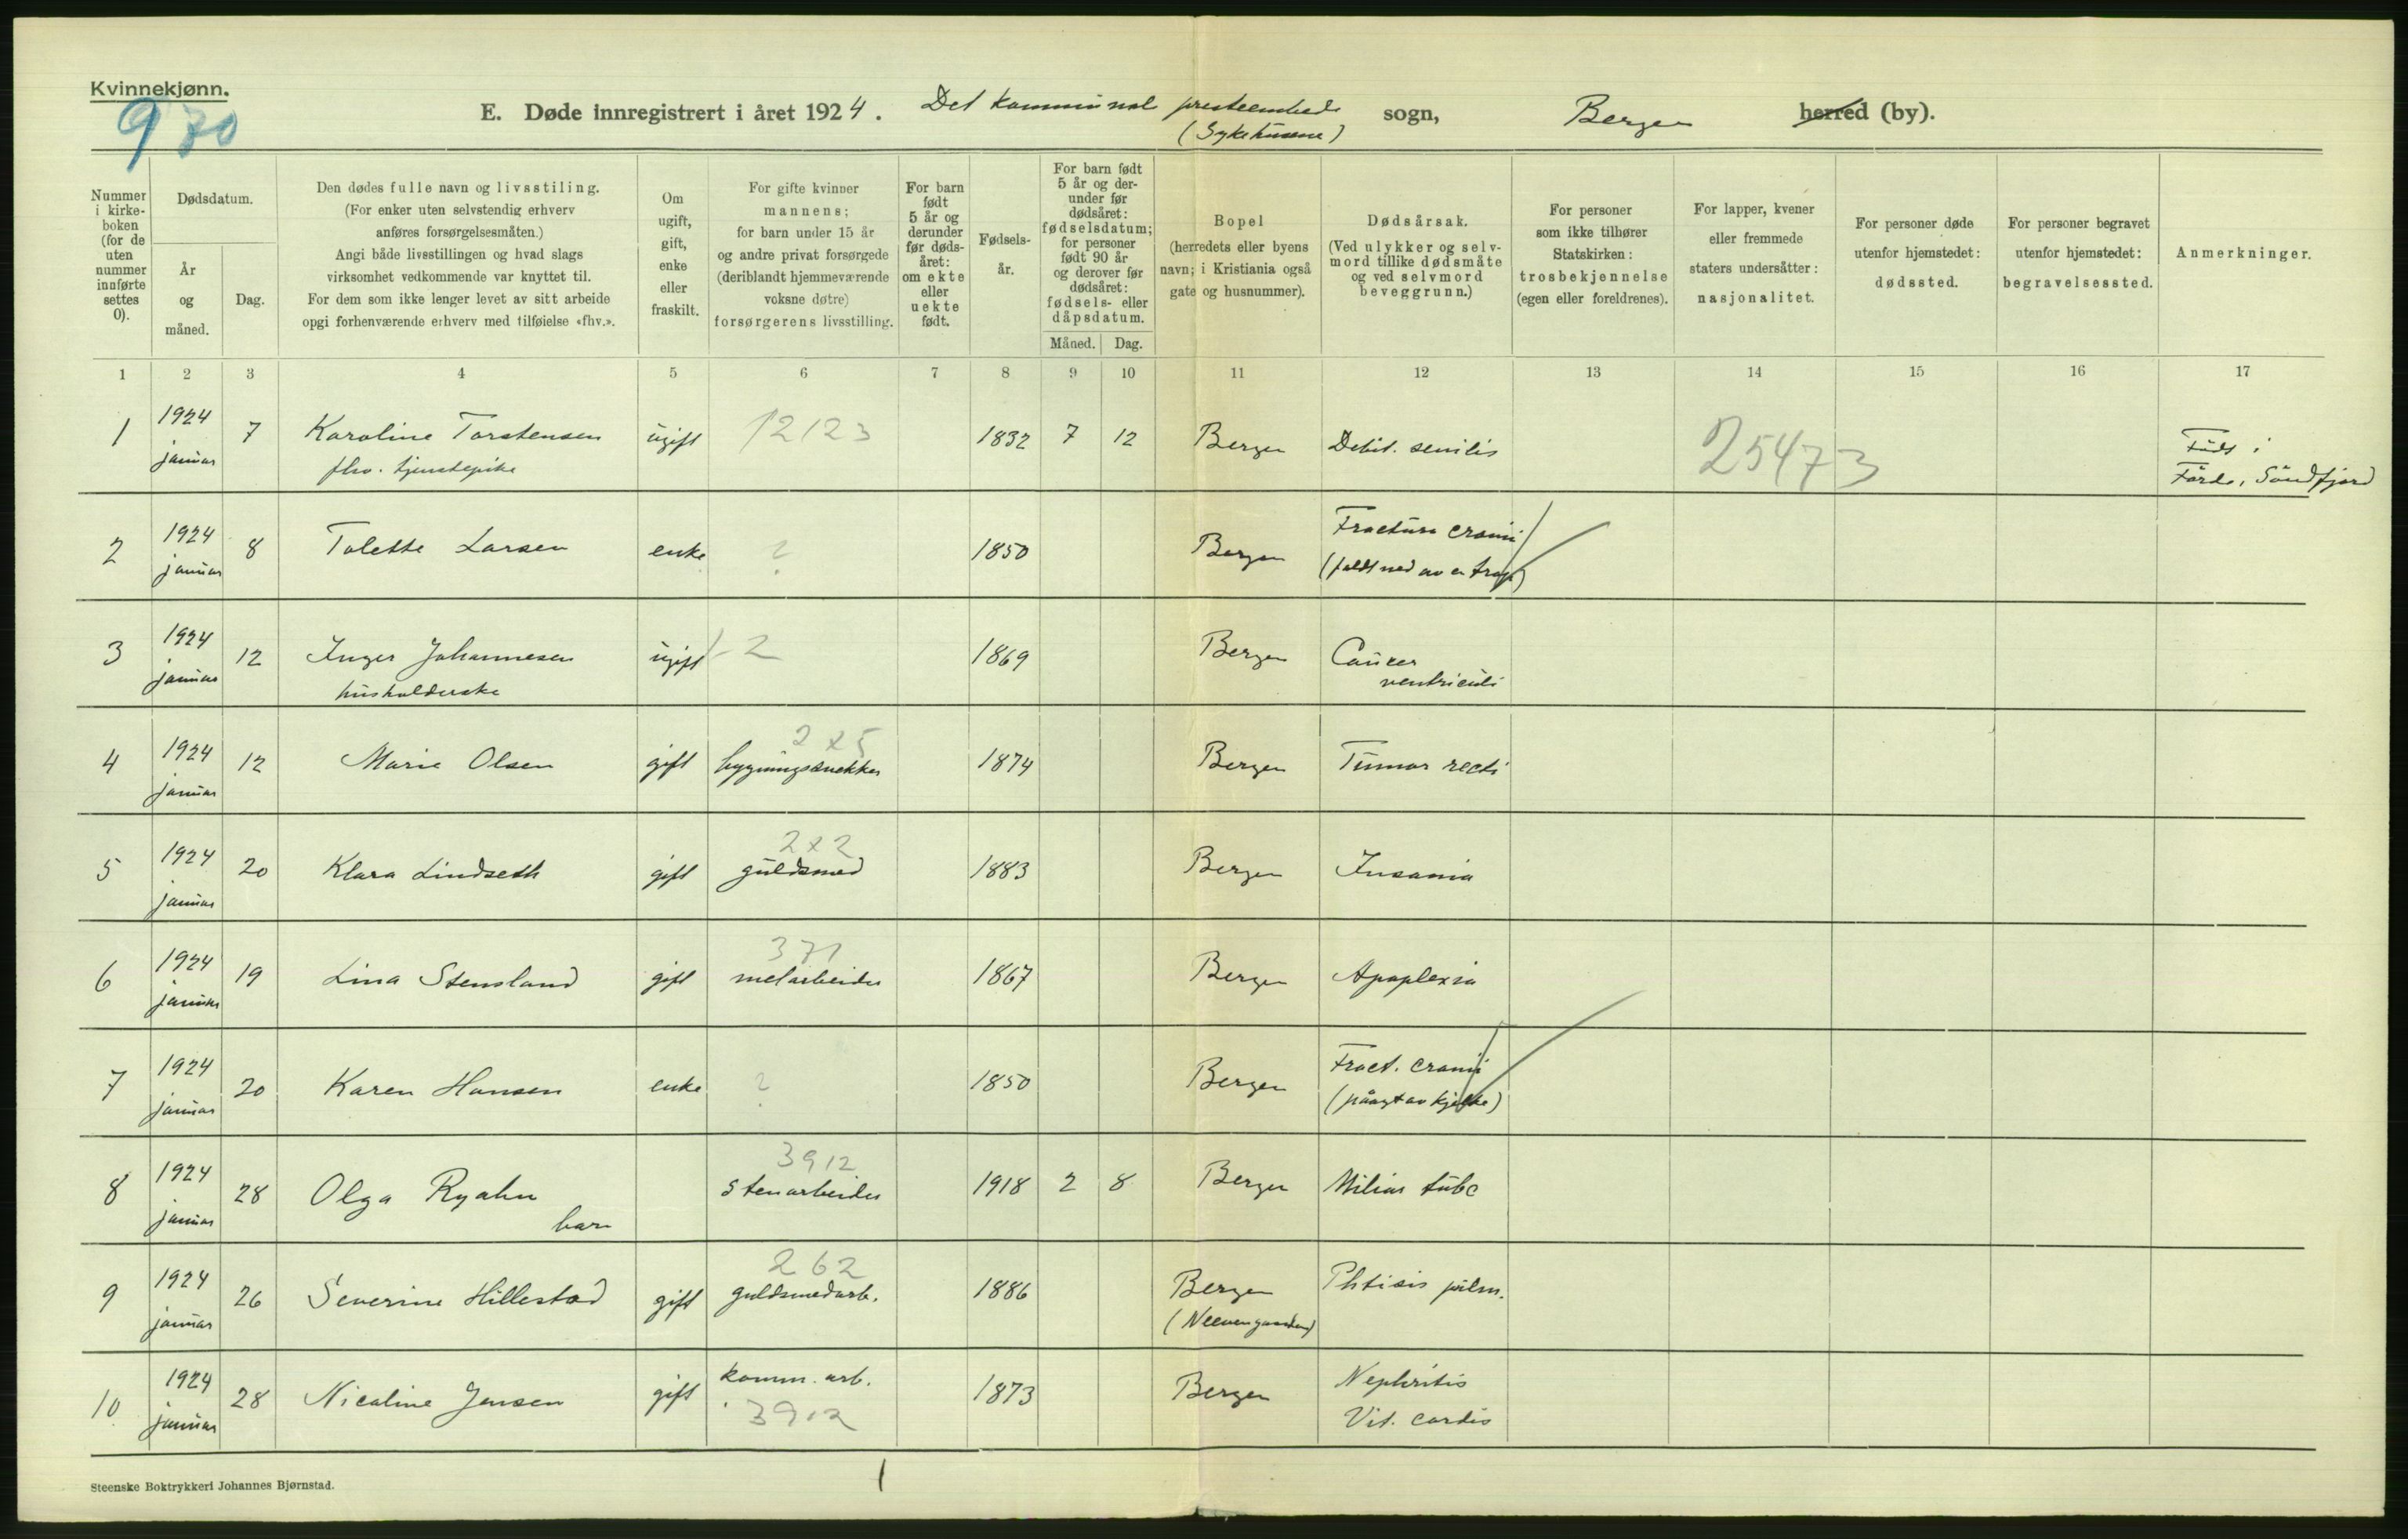 Kvinnekjønn.
970
E. Døde innregistrert i året 1924. Det kommunale presteembede sogn, Bergen herred (by).
(Sykehusene)
Nummer i kirkeboken (for de uten nummer innførte settes 0).
Dødsdatum.
År og måned.
Dag.
Den dødes fulle navn og livsstiling.
(For enker uten selvstendig erhverv
anføres forsørgelsesmåten.)
Angi både livsstillingen og hvad slags
virksomhet vedkommende var knyttet til.
For dem som ikke lenger levet av sitt arbeide
opgi forhenværende erhverv med tilføielse «fhv.».
Om ugift, gift, enke eller fraskilt.
For gifte kvinner
mannens;
for barn under 15 år
og andre privat forsørgede
(deriblandt hjemmeværende
voksne døtre)
forsørgerens livsstilling.
For barn født 5 år og derunder før dødsåret: om ekte eller uekte født.
Fødselsår.
For barn født 5 år og derunder før dødsåret: fødselsdatum; for personer født 90 år og derover før dødsåret: fødsels- eller dåpsdatum.
Måned.
Dag.
Bopel
(herredets eller byens
navn; i Kristiania også
gate og husnummer).
Dødsårsak.
(Ved ulykker og selvmord tillike dødsmåte
og ved selvmord
beveggrunn.)
For personer
som ikke tilhører
Statskirken:
trosbekjennelse
(egen eller foreldrenes).
For lapper, kvener
eller fremmede
staters undersåtter:
nasjonalitet.
For personer døde
utenfor hjemstedet:
dødssted.
For personer begravet
utenfor hjemstedet:
begravelsessted.
Anmerkninger.
1 2 3 4 5 6 7 8 9 10 11 12 13 14 15 16 17
1 1924 januar 7 Karoline Torstensen ugift 12123 1832 7 12 Bergen Debit. senilis 25473 Født i
fhv. tjenestepike Førde, Søndfjord
2 1924 januar 8 Tolette Larsen enke ? 1850 Bergen Fractura cranii
(faldt ned av en trap)
3 1924 januar 12 Inger Johannesen ugift - 2 1869 Bergen Cancer
husholderske ventriculi
4 1924 januar 12 Marie Olsen gift 2 x 5 bygningssnekker 1874 Bergen Tumor recti
5 1924 januar 20 Klara Lindseth gift 2 x 2 guldsmed 1883 Bergen Insania
6 1924 januar 19 Lina Stensland gift 371 metarbeider 1867 Bergen Apoplexia
7 1924 januar 20 Karen Hansen enke ? 1850 Bergen Fract. cranii
(påagt av kjelke)
8 1924 januar 28 Olga Ryahn 3912 stenarbeider 1918 2 8 Bergen Miliar tubc
barn
9 1924 januar 26 Severine Hillestad gift 262 guldsmedarb. 1886 Bergen Phtisis pulm.
10 1924 januar 28 Nicoline Jensen gift komm. arb. 3912 1873 Bergen Nephritis
Vit. cordis
Steenske Boktrykkeri Johannes Bjørnstad.
1